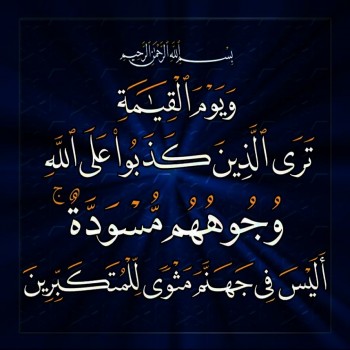 بِسْمِ ٱللَّهِ ٱلرَّحْمَٰنِ ٱلرَّحِيمِ
وَيَوْمَ ٱلْقِيَٰمَةِ
تَرَى ٱلَّذِينَ كَذَبُوا۟ عَلَى ٱللَّهِ
وُجُوهُهُم مُّسْوَدَّةٌ ۚ
أَلَيْسَ فِى جَهَنَّمَ مَثْوًى لِّلْمُتَكَبِّرِينَ